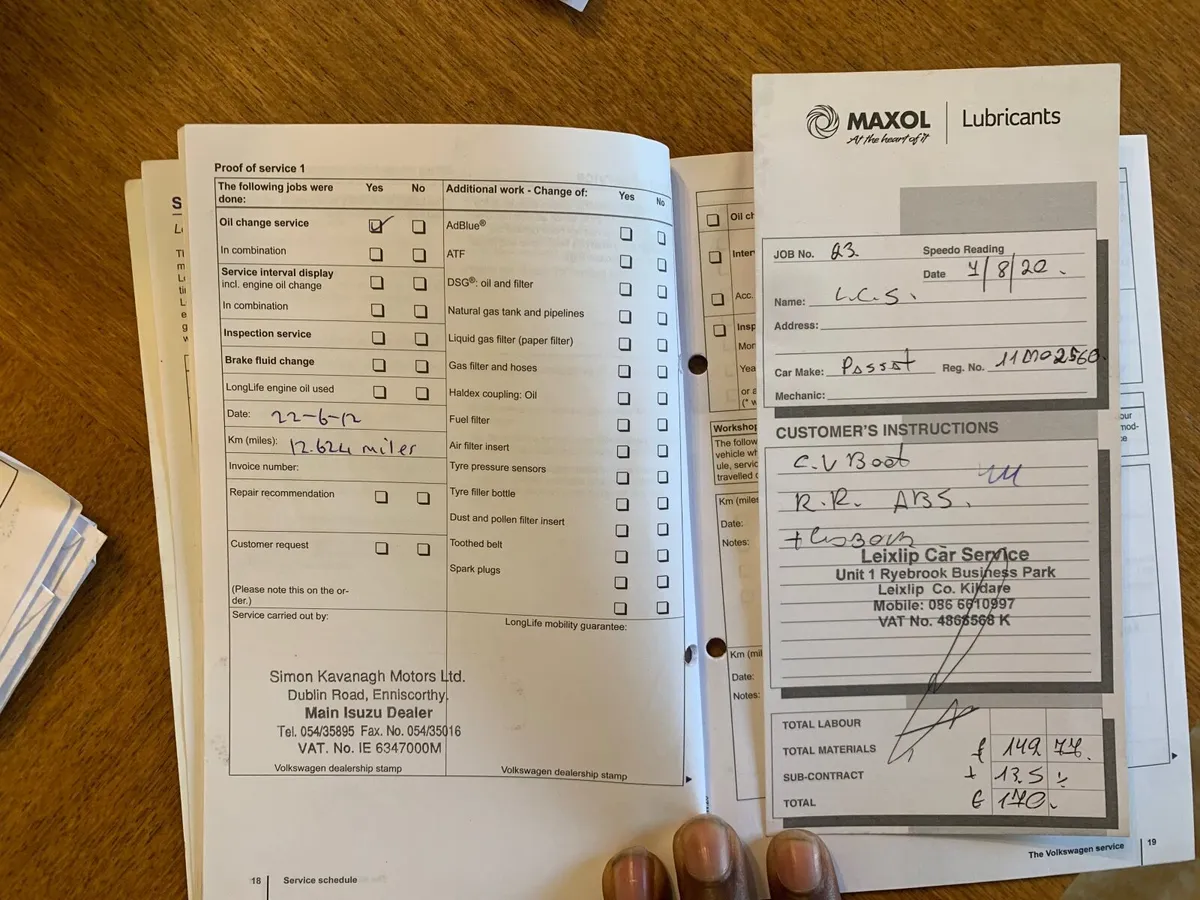 Proof of service 1
The following jobs were done: Yes No Additional work - Change of: Yes No
Oil change service
In combination
Service interval display
incl. engine oil change
In combination
Inspection service
Brake fluid change
LongLife engine oil used
Date: 22-6-12
Km (miles): 12.624 miles
Invoice number:
Repair recommendation
Customer request
(Please note this on the or-
der.)
AdBlue®
ATF
DSG®: oil and filter
Natural gas tank and pipelines
Liquid gas filter (paper filter)
Gas filter and hoses
Haldex coupling: Oil
Fuel filter
Air filter insert
Tyre pressure sensors
Tyre filler bottle
Dust and pollen filter insert
Toothed belt
Spark plugs
Service carried out by:
Simon Kavanagh Motors Ltd.
Dublin Road, Enniscorthy.
Main Isuzu Dealer
Tel. 054/35895 Fax. No. 054/35016
VAT. No. IE 6347000M
Volkswagen dealership stamp
LongLife mobility guarantee:
Volkswagen dealership stamp
18 Service schedule
MAXOL Lubricants
At the heart of it
JOB No. 23.
Speedo Reading
Date 7/8/20.
Name: L.C.S.
Address:
Car Make: Passat Reg. No.
Mechanic:
CUSTOMER'S INSTRUCTIONS
C.V Boot
R.R. ABS.
Leixlip Car Service
Unit 1 Ryebrook Business Park
Leixlip Co. Kildare
Mobile: 086 6610997
VAT No. 4868568 K
TOTAL LABOUR
TOTAL MATERIALS 149 77.
SUB-CONTRACT + 13.5
TOTAL € 170.
Workshop
The follow
vehicle wh
ule, servic
travelled
Km (miles
Date:
Notes:
Km (mil
Date:
Notes:
The Volkswagen service 19